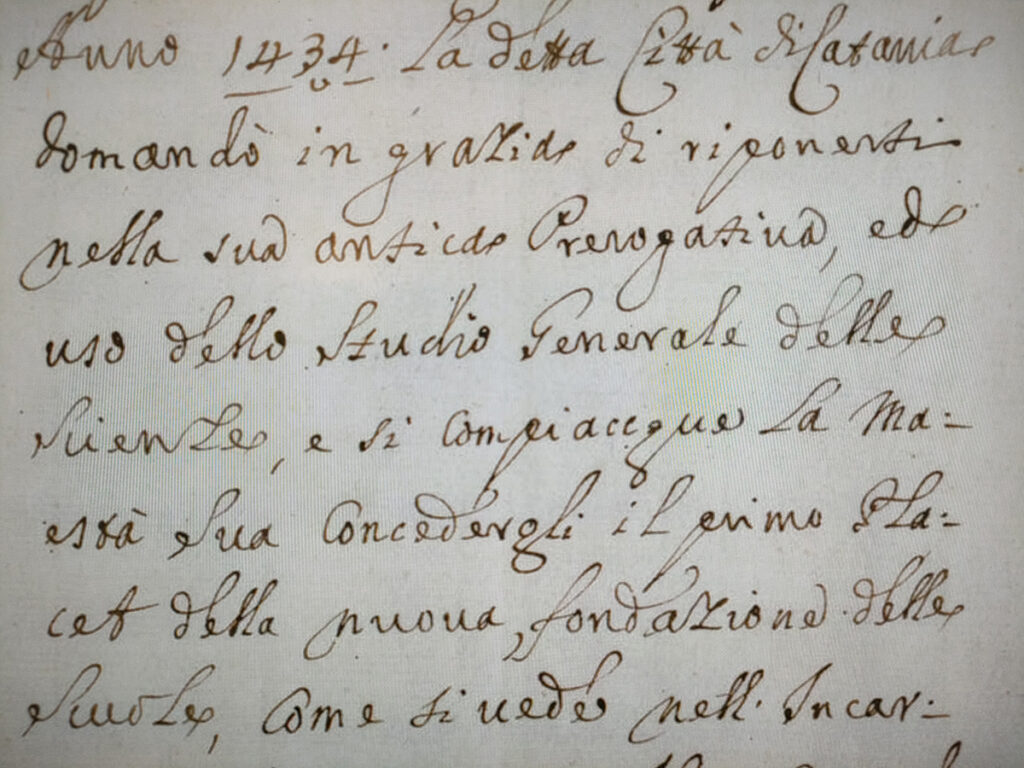 Anno 1434. La detta Città di Catania
domandò in grazia di riponersi
nella sua antica Prerogativa, ed
uso dello Studio Generale delle
Scienze, e si compiacque La Ma=
està Sua Concedergli il primo Pla=
cet della nuova, fondazione delle
Scuole, Come si vede nell. Incar=